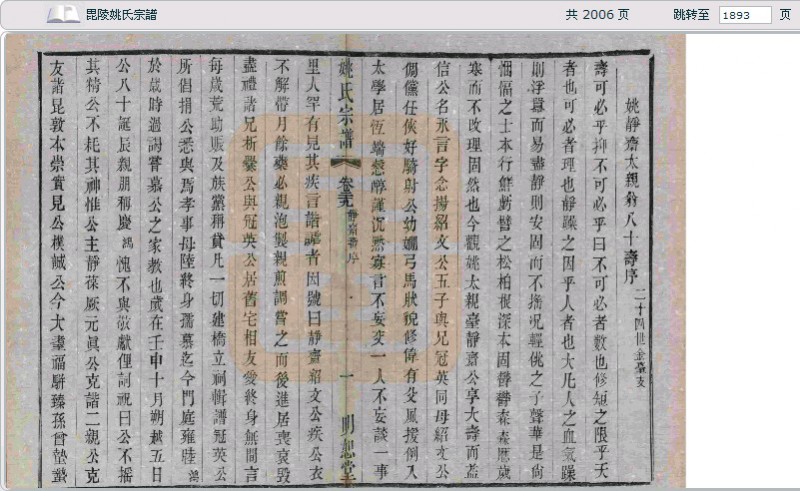 毘陵姚氏宗譜
共 2006 页
跳转至 1893 页
姚靜齋太親翁八十壽序 二十四世金臺支
壽可必乎抑不可必乎曰不可必者數也修短之限乎天
者也可必者理也靜躁之因乎人者也大凡人之血氣躁
則浮囂而易盡靜則安固而不搖況輕佻之子聲華是尚
悃愊之士本行鮮虧譬之松柏根深本固鬱鬱森森歷歲
寒而不改理固然也今觀姚太親臺靜齋公享大壽而益
信公名永言字念揚紹文公五子與兄冠英同母紹文公
倜儻任俠好騎射公幼嫺弓馬狀貌修偉有父風援例入
太學居恆端慤醇謹沉默寡言不妄交一人不妄談一事
姚氏宗譜 卷三十九 靜齋壽序 一 明恕堂
里人罕有見其疾言詣譁者因號曰靜齋紹文公疾公衣
不解帶月餘藥必親泡製親煎調嘗之而後進居喪哀毀
盡禮諸兄析爨公與冠英公居舊宅相友愛終身無間言
每歲荒助賑及族黨稱貸凡一切建橋立祠輯譜冠英公
所倡捐公悉與焉孝事母陸終身孺慕迄今門庭雍睦 鴻
於歲時過謁嘗慕公之家教也歲在壬申十月朔越五日
公八十誕辰親朋稱慶 鴻 愧不與敬獻俚詞祝曰公不搖
其精公不耗其神惟公主靜葆厥元眞公克諧二親公克
友諸昆敦本崇實見公樸誠公今大耋福駢臻孫曾蟄蟄